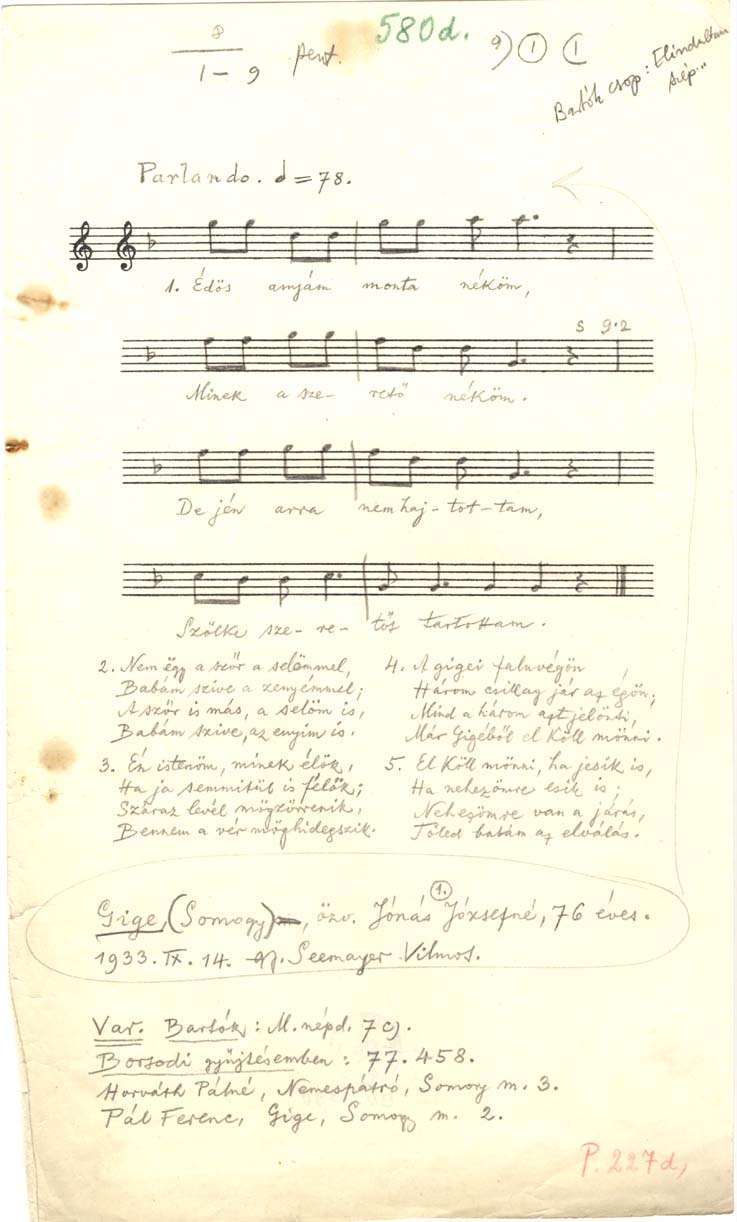 8
1–9 pent. 580d. 9) 1 (1
Bartók csop: Elindultam
szép...
Parlando. = 78.
1. Édös anyám monta néköm,
S 9·2
Minek a sze- rető néköm.
De jén arra nem haj-tot-tam,
Szőlke sze- re- tőt tartottam.
2. Nem égy a szőr a selömmel,
Babám szive a zenyémmel;
A szőr is más, a selöm is,
Babám szive, az enyim is.
3. Én istenöm, minek élök,
Ha ja semmitül is félök;
Száraz levél mögzörrenik,
Bennem a vér möghidegszik.
4. A gigei faluvégön,
Három csillag jár az égön;
Mind a három azt jelönti,
Már Gigeből el köll mönni.
5. El köll mönni, ha jesik is,
Ha nehezömre esik is;
Nehezömre van a járás,
Tőled babám az elválás.
Gige, (Somogy), özv. Jónás Józsefné, 76 éves.
1.
1933. IX. 14. gy. Seemayer Vilmos.
Var. Bartók: M. népd. 7c).
Borsodi gyűjtésemben: 77. 458.
Horváth Pálné, Nemespátró, Somogy m. 3.
Pál Ferenc, Gige, Somogy m. 2.
P. 227d,